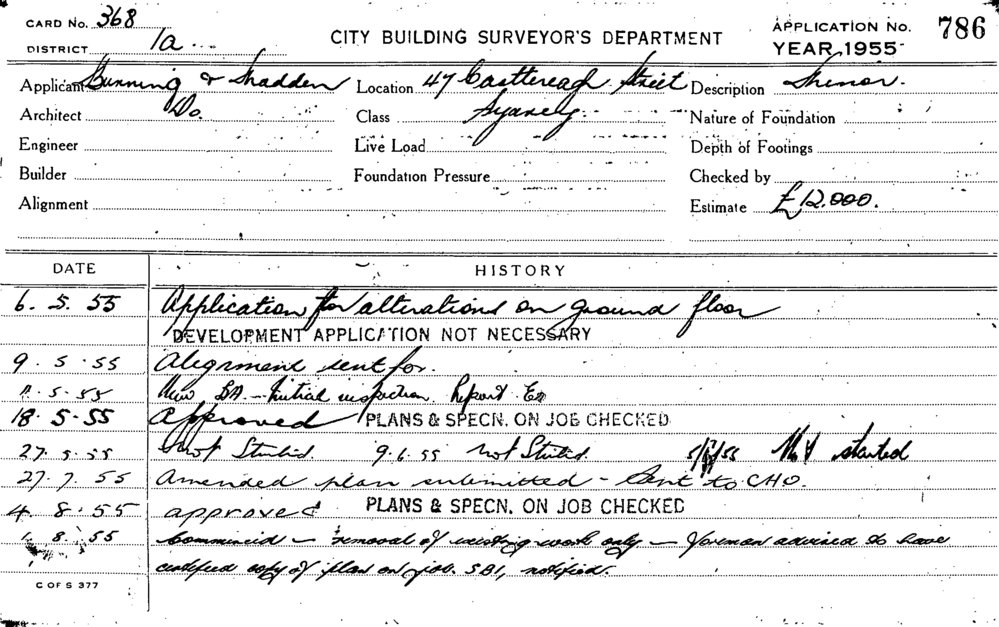 CARD No. 368
DISTRICT 1a
CITY BUILDING SURVEYOR'S DEPARTMENT
APPLICATION No. 786
YEAR 1955
Applicant Bunning & Madden
Location 47 Castlereagh Street
Description Minor.
Architect Do.
Class Sydney.
Nature of Foundation
Engineer
Live Load
Depth of Footings
Builder
Foundation Pressure
Checked by
Alignment
Estimate £12.000.
DATE HISTORY
6. 5. 55 Application for alterations on ground floor
DEVELOPMENT APPLICATION NOT NECESSARY
9. 5. 55 Alignment sent for.
5. 55 New BA. Initial inspection. Report
18. 5. 55 Approved PLANS & SPECN. ON JOB CHECKED
27. 5. 55 Not Started. 9.6.55 Not Started. Not started
27. 7. 55 Amended plan submitted - Sent to CHO.
4. 8. 55 approved PLANS & SPECN. ON JOB CHECKED
8. 55 Commenced - removal of existing work only - foreman advised to have
certified copy of plan on job. SBI, notified.
C OF S 377